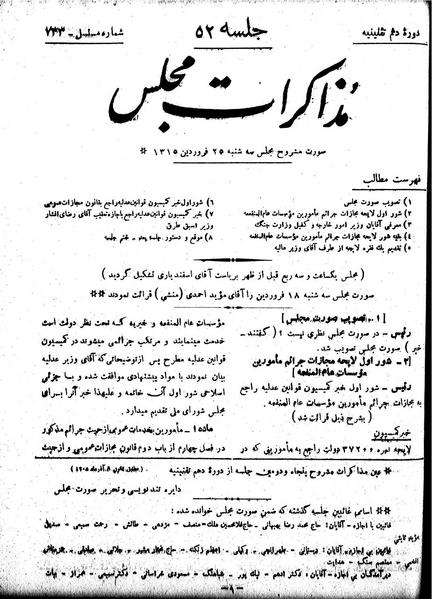 دورهٔ دهم تقنینیه
جلسه ۵۲
شماره مسلسل - ۷۳۳
مذاکرات مجلس
صورت مشروح مجلس سه شنبه ۲۵ فروردین ۱۳۱۵ *
فهرست مطالب
۱) تصویب صورت مجلس
۲) شور اول لایحه مجازات جرائم مأمورین مؤسسات عام المنفعه
۳) معرفی آقایان وزیر امور خارجه و کفیل وزارت جنگ
۴) بقیه شور اول لایحه مجازات جرائم مأمورین مؤسسات عام المنفعه
۵) تقدیم یک فقره لایحه از طرف آقای وزیر مالیه
۶) شور اول خبر کمیسیون قوانین عدلیه راجع بقانون مجازات عمومی
۷) خبر کمیسیون قوانین عدلیه راجع باجازه تعقیب آقای رضای افشار
وزیر اسبق طرق
۸) موقع و دستور جلسه بعد - ختم جلسه
( مجلس یکساعت و سه ربع قبل از ظهر بریاست آقای اسفندیاری تشکیل گردید )
صورت مجلس سه شنبه ۱۸ فروردین را آقای مؤید احمدی (منشی) قرائت نمودند **
[ ۱ - تصویب صورت مجلس ]
رئیس - در صورت مجلس نظری نیست ؟ ( گفتند -
خیر ) صورت مجلس تصویب شد.
[ ۲ - شور اول لایحه مجازات جرائم مأمورین
مؤسسات عام المنفعه ]
رئیس - شور اول خبر کمیسیون قوانین عدلیه راجع
به مجازات جرائم مأمورین مؤسسات عام المنفعه.
( بشرح ذیل قرائت شد )
خبر کمیسیون
لایحه نمره ۳۷۲۰۰ دولت راجع به مأمورینی که در
مؤسسات عام المنفعه و خیریه که تحت نظر دولت است
خدمت مینمایند و مرتکب جرائمی میشوند در کمیسیون
قوانین عدلیه مطرح پس از توضیحاتی که آقای وزیر عدلیه
بیان نمودند با مواد پیشنهادی موافقت شده و با جزئی
اصلاحی شور اول آن خاتمه و علیهذا خبر آنرا برای
مجلس شورای ملی تقدیم میدارد.
ماده ۱ - مأمورین بخدمات عمومی از حیث جرائم مذکور
در فصل چهارم از باب دوم قانون مجازات عمومی و از حیث
* عین مذاکرات مشروح پنجاه و دومین جلسه از دورهٔ دهم تقنینیه
دایره تندنویسی و تحریر صورت مجلس
** اسامی غائبین جلسه گذشته که ضمن صورت مجلس خوانده شده :